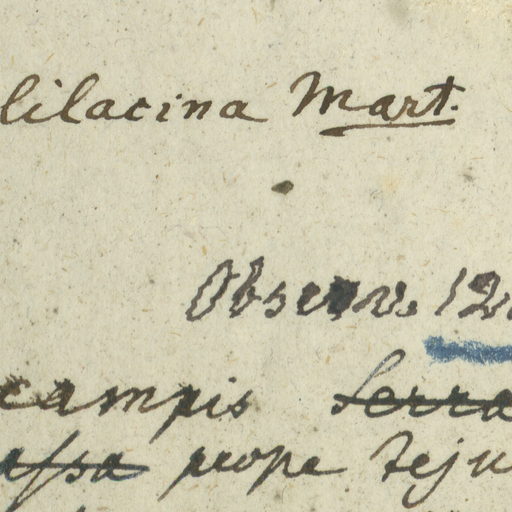 lilacina Mart.
Observ. 12
campis Serra
prope Teju